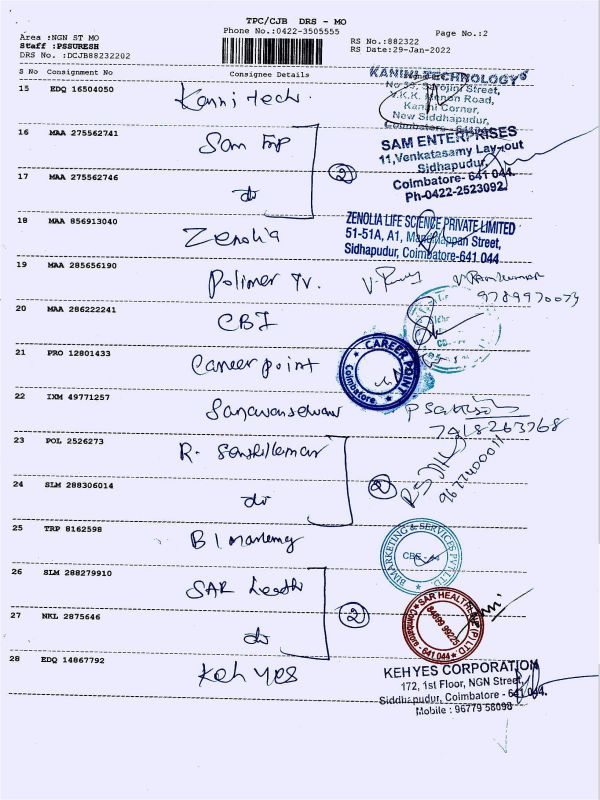 TPC/CJB DRS - MO
Phone No.:0422-3505555
Page No.:2
Area :NGN ST MO
Staff :PSSURESH
DRS No. :DCJB88232202
RS No.:882322
RS Date:29-Jan-2022
S No Consignment No Consignee Details
15 EDQ 16504050 Kanni tech
KANINI TECHNOLOGYS
Sarojini Street,
V.K.K. Menon Road,
Kanini Corner,
New Siddhapudur,
Coimbatore
16 MAA 275562741 Sam Ent
SAM ENTERPRISES
11,Venkatasamy Lay-out
Sidhapudur,
Coimbatore- 641 044.
Ph-0422-2523092
17 MAA 275562746 do
2
18 MAA 856913040 Zenolia
ZENOLIA LIFE SCIENCE PRIVATE LIMITED
51-51A, A1, Street,
Sidhapudur, Coimbatore-641 044
19 MAA 285656190 Polimer Tv.
20 MAA 286222241 CBI
21 PRO 12801433 Career point
CAREER POINT
Coimbatore.
22 IXM 49771257
23 POL 2526273 R.
24 SLM 288306014 do
2
25 TRP 8162598 BI
BIMARKETING & SERVICES PVT LTD
26 SLM 288279910 SAR
SAR HEALTHLINE (P) LTD
84899 99225
Coimbatore - 641 044
27 NKL 2875646 do
2
28 EDQ 14867792 Keh yes
KEHYES CORPORATION
172, 1st Floor, NGN Street,
Siddhapudur, Coimbatore - 641 044.
Mobile : 96779 58098